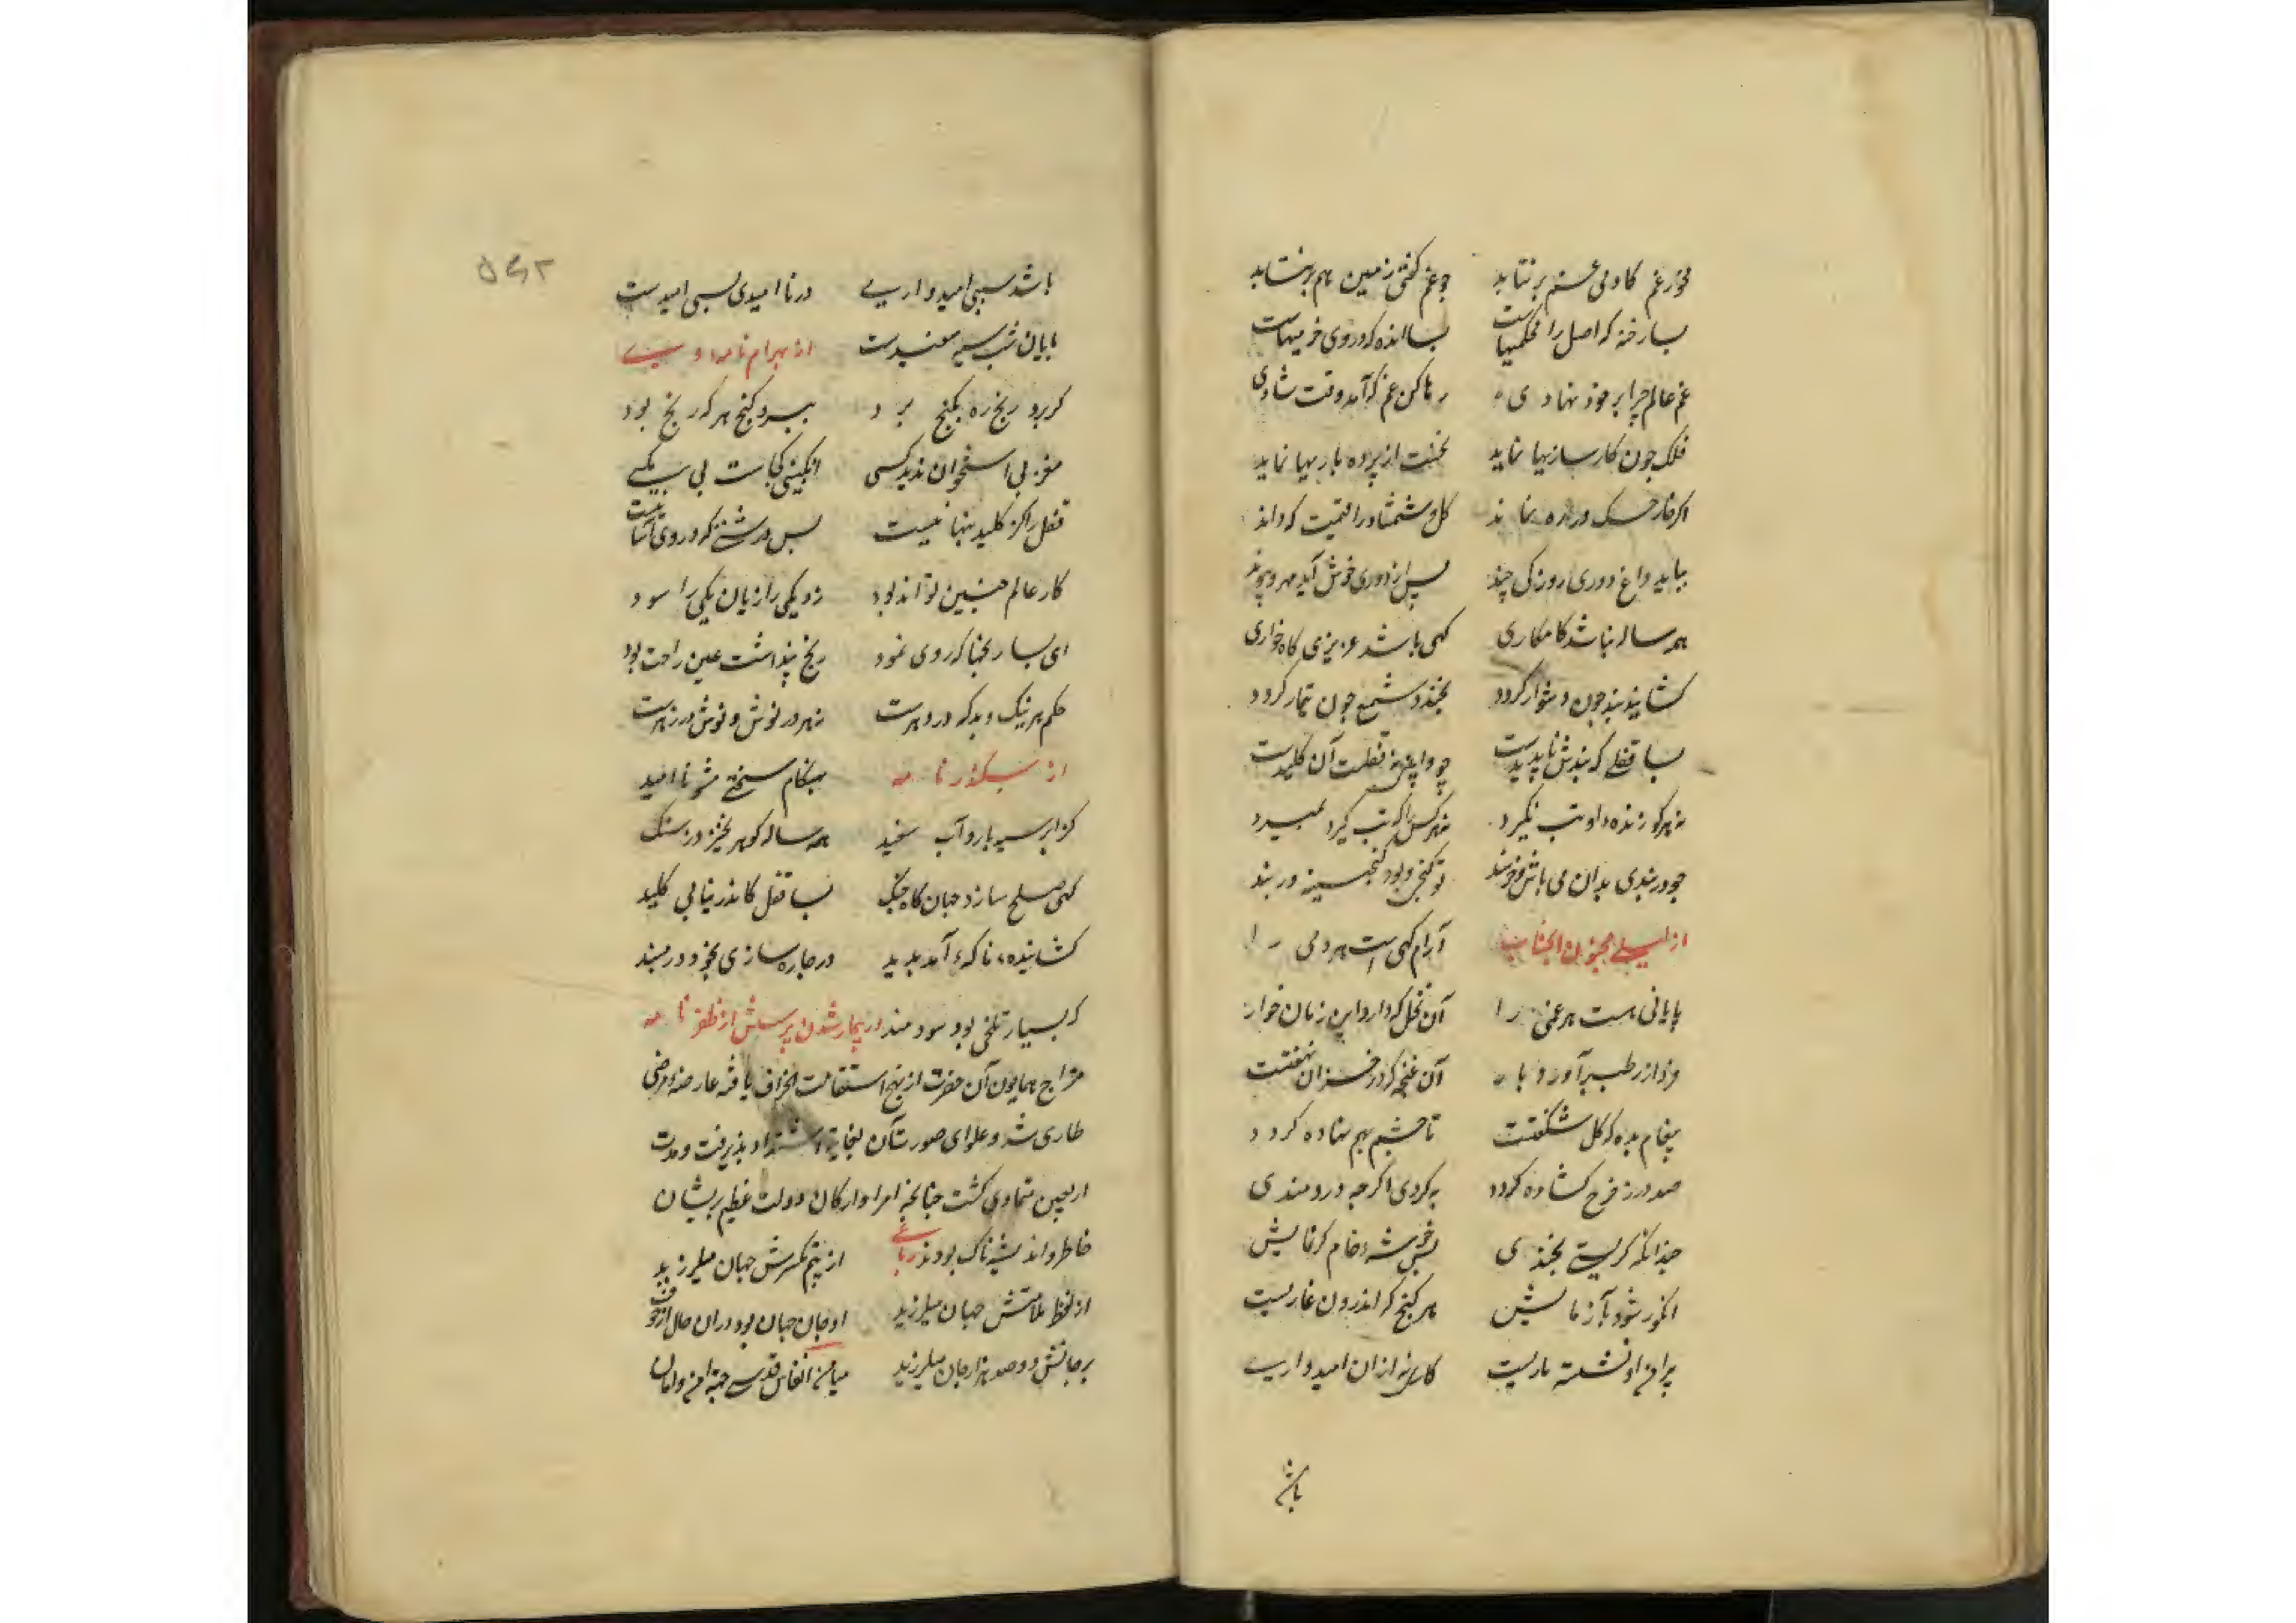 مخور غم کادمی غم برنتابد چو غم گفتی زمین هم برنتابد
بسا رخنه که اصل محکمیهاست بسا انده که در وی خرمیهاست
غم عالم چرا بر خود نهادی رها کن غم که آمد وقت شادی
فلک چون کارسازیها نماید نخست از پرده بازیها نماید
اگر خار خسک در ره نماند گل و شمشاد را قیمت که داند
بباید داغ دوری روزکی چند پس از دوری خوش آید مهر و پیوند
همه ساله نباشد کامکاری گهی باشد عزیزی گاه خواری
گشاید بند چون دشوار گردد بخندد شمع چون بیمار گردد
بسا قفلی که بندش ناپدیدست چو وابینی نه قفلست آن کلیدست
نه هرکو زنده داو تب نگیرد نه هر کس را که تب گیرد بمیرد
چو در بندی بدان می باش خرسند تو گنجی و بود گنجینه در بند
از لیلی مجنون آرام گهی است هر دمی را
پایانی هست هر غمی را آن نخل که دارد این زمان خوار
فردا رطب آورد بار آن غنچه که در خزان نهفتست
پیغام بده که گل شکفتست تا چشم بهم نهاده گردد
صد در ز فرح گشاده گردد به گردی اگر چه دردمندی
چندانکه گریستی بخندی بس خوشهٔ خام کز نمایش
انگور شود بآزمایش هر گنج که اندرون غاریست
بر او نشسته ماریست کاری نه ازان امیدواری
باشد
باشد سببی امیدواری در ناامیدی بسی امیدست
پایان شب سیه سفیدست از بهرام نامه
گر برد رنج ره بگنج برد ببرد گنج هر که رنج بود
مغز بی استخوان ندید کسی انگبینی کجاست بی مگسی
قفل را کز کلید تنها نیست بس درشتی که در وی آسانیست
کار عالم چنین تواند بود زو یکی را زیان یکی را سود
ای بسا رنجها که روی نمود رنج پنداشت عین راحت بود
حکم هر نیک و بد که در دهرست زهر در نوش و نوش در زهرست
از سکندر نامه بهنگام سختی مشو ناامید
کز ابر سیه بارد آب سفید همه ساله گوهر نخیزد ز سنگ
گهی صلح سازد جهان گاه جنگ بسا قفل کاندر نیابی کلید
گشاینده ناگه آمد پدید در چاره سازی بخود در مبند
که بسیار تلخی بود سودمند در بیمار شدن پرسش از ظفر نامه
مزاج همایون آن حضرت از نهج استقامت انحراف یافته عارضه مرضی
طاری شد و صورت آن بغایة اشتداد پذیرفت و مدت
اربعین متمادی گشت چنانچه امرا و ارکان دولت عظیم پریشان
خاطر و اندیشه ناک بودند رباعی جهان میلرزید
جهان میلرزید او جان جهان بود دران حال از خوف
بر جانش دوصد هزار جان میلرزید میامن انفاس قدسی